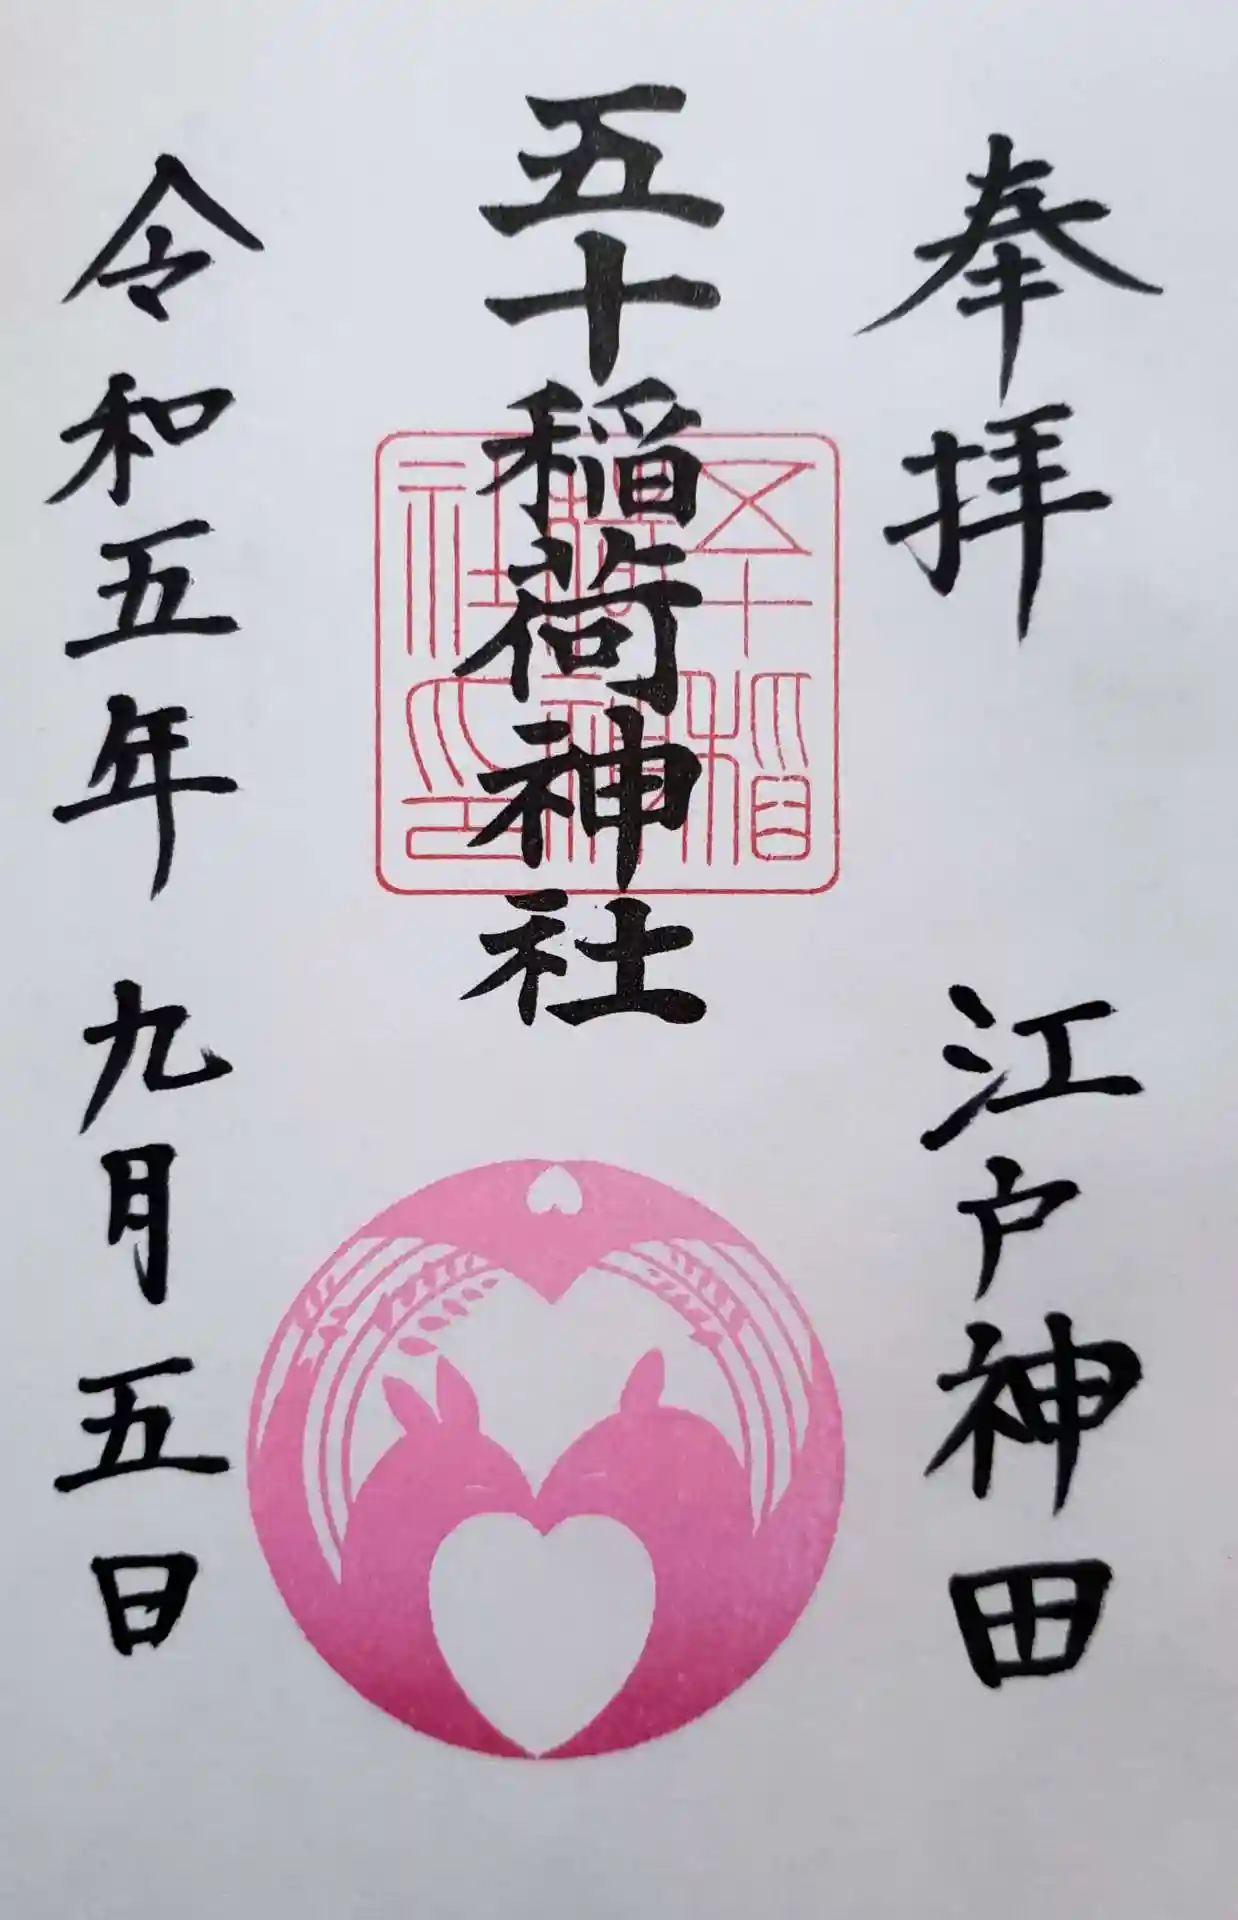 奉拝　江戸神田
五十稲荷神社
五十稲
荷神
社印
令和五年　九月　五日